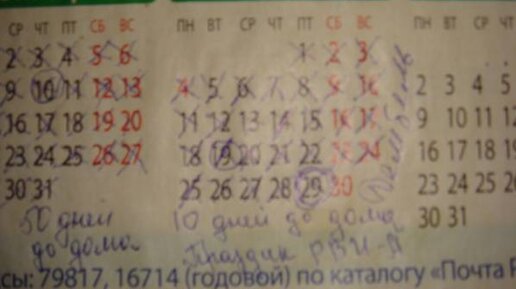 СР ЧТ ПТ СБ ВС
2 3 4 5 6
9 10 11 12 13
16 17 18 19 20
23 24 25 26 27
30 31
ПН ВТ СР ЧТ ПТ СБ ВС
1 2 3
4 5 6 7 8 9 10
11 12 13 14 15 16 17
18 19 20 21 22 23 24
25 26 27 28 29 30
2 3 4 5
9 10 11 12
16 17 18 19
23 24 25 26
30 31
50 дней
до дома
10 дней до дома
Праздник РВИ-Я
сы: 79817, 16714 (годовой) по каталогу «Почта Р